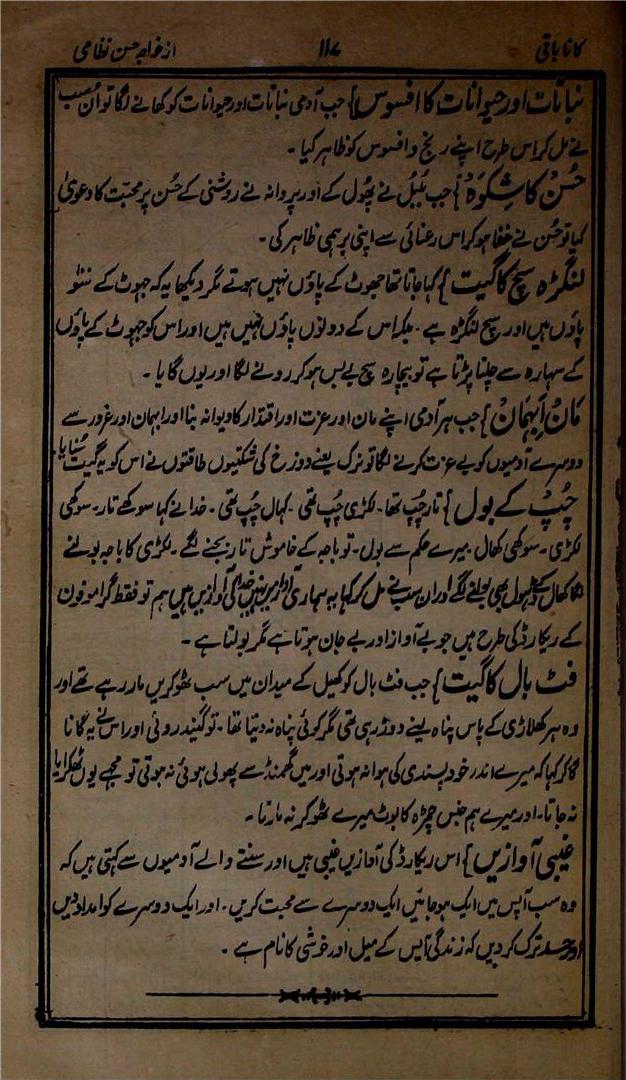 کانا باتی ۱۱۷ از خواجہ حسن نظامی
نباتات اور حیوانات کا افسوس} جب آدمی نباتات اور حیوانات کو کھانے لگا تو اُن سب
نے مل کر اس طرح اپنے رنج و افسوس کو ظاہر کیا۔
حُسن کا شِکوَہ} جب بُلبُل نے پھُول کے اور پروانہ نے روشنی کے حُسن پر محبّت کا دعویٰ
کیا تو حُسن نے خفا ہو کر اس رعنائی سے اپنی برہمی ظاہر کی۔
لنگڑہ سچ کا گیت} کہا جاتا تھا جھوٹ کے پاؤں نہیں ہوتے مگر دیکھا یہ کہ جہوٹ کے ننّو
پاؤں ہیں اور سچ لنگڑہ ہے۔ بلکہ اس کے دونوں پاؤں نہیں ہیں اور اس کو جہوٹ کے پاؤں
کے سہارہ سے چلنا پڑتا ہے تو بیچارہ سچ بے بس ہو کر رونے لگا اور یوں گایا۔
مَانْ اَبہمَانْ} جب ہر آدمی اپنے مان اور عزت اور اقتدار کا دیوانہ بنا اور ابہمان اور غرور سے
دوسرے آدمیوں کو بے عزت کرنے لگا تو نرک یعنے دوزخ کی شکتیوں طاقتوں نے اس کو یہ گیت سُنایا۔
چُپ کے بول} تار چُپ تھا۔ لکڑی چُپ تھی۔ کہال چُپ تھی۔ خدا نے کہا سوکھے تار۔ سوکھی
لکڑی۔ سوکھی کھال۔ میرے حکم سے بول۔ تو باجہ کے خاموش تار بجنے لگے۔ لکڑی کا باجہ بولنے
لگا کھال کے ڈھول بھی بولنے لگے اور ان سب نے مل کر کہا یہ ہماری آوازیں نہیں خدا کی آوازیں ہیں ہم تو فقط گراموفون
کے ریکارڈ کی طرح ہیں جو بے آواز اور بے جان ہوتا ہے مگر بولتا ہے۔
فٹ بال کا گیت} جب فٹ بال کو کھیل کے میدان میں سب ٹھوکریں مار رہے تھے اور
وہ ہر کھلاڑی کے پاس پناہ لینے دوڑ رہی تھی مگر کوئی پناہ نہ دیتا تھا۔ تو گیند روئی اور اس نے یہ گانا
گا کر کہا کہ میرے اندر خود پسندی کی ہوا نہ ہوتی اور میں گھمنڈ سے پھولی ہوئی نہ ہوتی تو مجھے یوں ٹھکرایا
نہ جاتا۔ اور میرے ہم جنس چمڑہ کا بوٹ میرے ٹھوکر نہ مارتا۔
غیبی آوازیں} اس ریکارڈ کی آوازیں غیبی ہیں اور سننے والے آدمیوں سے کہتی ہیں کہ
وہ سب آپس میں ایک ہو جائیں ایک دوسرے سے محبت کریں۔ اور ایک دوسرے کو امداد دیں
اور حسد ترک کر دیں کہ زندگی آپس کے میل اور خوشی کا نام ہے۔